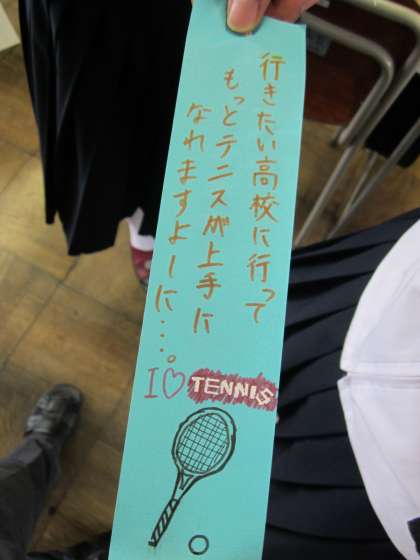 行きたい高校に行って
もっとテニスが上手に
なれますよーに…。
I♡TENNIS